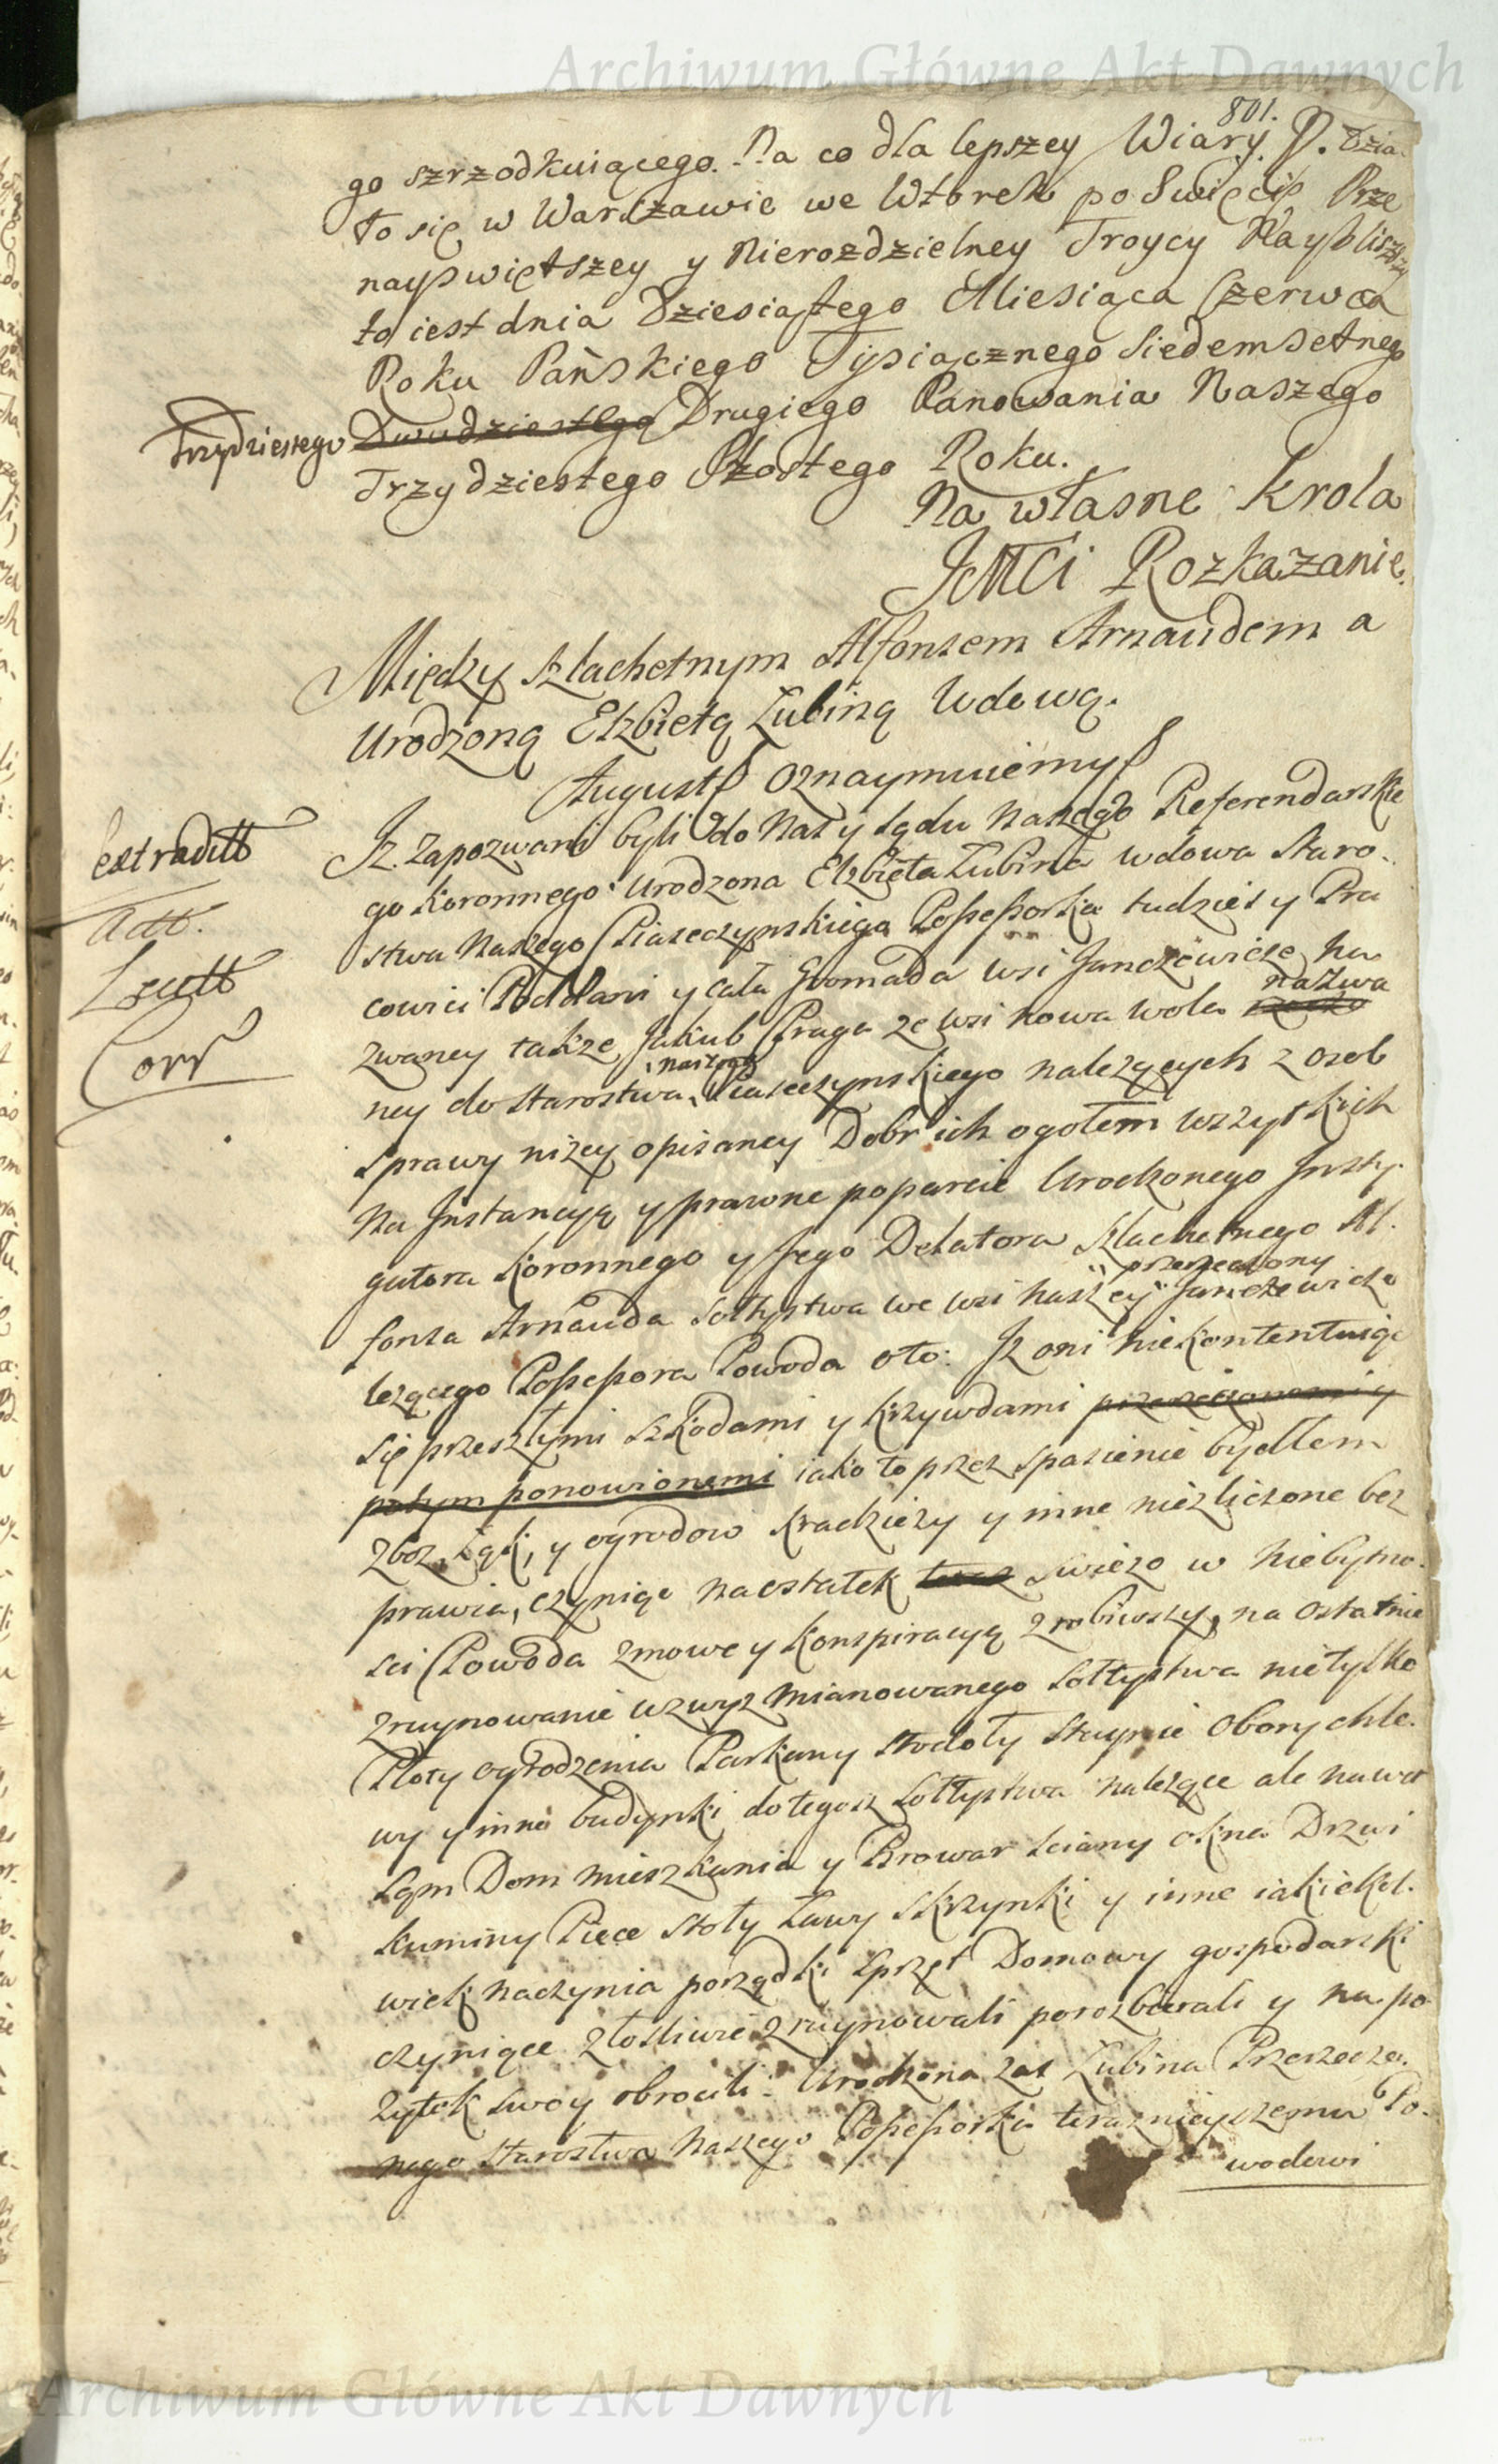 Archiwum Główne Akt Dawnych
801.
go szrzodkuiącego. Na co dla lepszey Wiary P. Dzia
to się w Warszawie we Wtorek po Swięcie Prze
nayswiętszey y Nierozdzielney Troycy Nayblisz
to iest dnia Dziesiątego Miesiąca Czerwca
Roku Pańskiego Tysiącznego Siedemsetnego
Trzydziestego Dwudziestego Drugiego Panowania Naszego
Trzydziestego Szostego Roku.
Na własne Krola
JMCi Rozkazanie.
Między szlachetnym Alfonsem Arnaudem a
Urodzoną Elzbietą Lubiną Wdową.
August oznaymuiemy
extraditt
Iz zapozwani byli do Nas y sądu Naszego Referendarskie
go Koronnego Urodzona Elzbieta Lubina wdowa Staro-
stwa Naszego Piaseczynskiego Possessorka tudziesz y Pra
Lectt
cowici Poddani y cała Gromada wsi Janczewice na
Corr
zwaney takze Jakub Praga ze wsi nowa wola nazwa
ney do Starostwa naszego Piaseczynskiego nalezących z osob
sprawy nizey opisaney Dobr ich ogołem wszystkich
Na Instancyą y prawne poparcie Urodzonego Insty
gatora Koronnego y Jego Delatora Szlachetnego Al-
fonsa Arnauda sołtystwa we wsi naszey przerzeczony Janczewice
lezącego Possessora Powoda oto: Iz oni niekontentuiąc
się przeszłymi szkodami y krzywdami przerzeczonemi y
potym ponowionemi iako to przez spasienie bydłem
zboz, łąk, y ogrodow kradziezy y inne niezliczone bez
prawia, czyniąc naostatek swiezo w niebytno-
sci Powoda zmowe y konspiracyą zrobiwszy, na ostatnie
zruynowanie wzwyz mianowanego sołtystwa nietylko
Płoty ogrodzenia Parkany stodoły staynie obory chle-
wy y inne budynki do tegosz sołtystwa nalezące ale nawet
sąm Dom mieszkania y Browar sciany okna Drzwi
kuminy Piece stoły Ławy skrzynki y inne iakiekol-
wiek naczynia porządki sprzęt Domowy gospodarski
czyniące złosliwie zruynowali porozbierali y na po-
zytek swoy obrocili. Urodzona zas Lubina Przerzeczo-
nego Starostwa Naszego Possessorka teraznieyszemu Po-
wodowi
Archiwum Główne Akt Dawnych